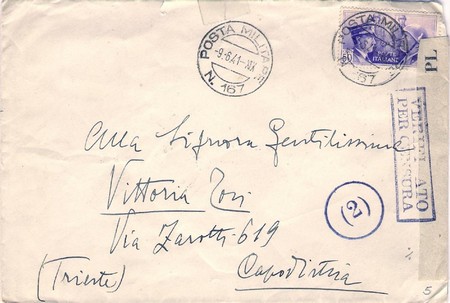 POSTA MILITARE
-9.6.41-XIX
N. 167
POSTA MILITARE
167
50
ITALIANE
PL
VERIFICATO
PER CENSURA
(27)
Alla Signora Gentilissima
Vittoria
Via Zarotti 619
(Trieste) Capodistria
5